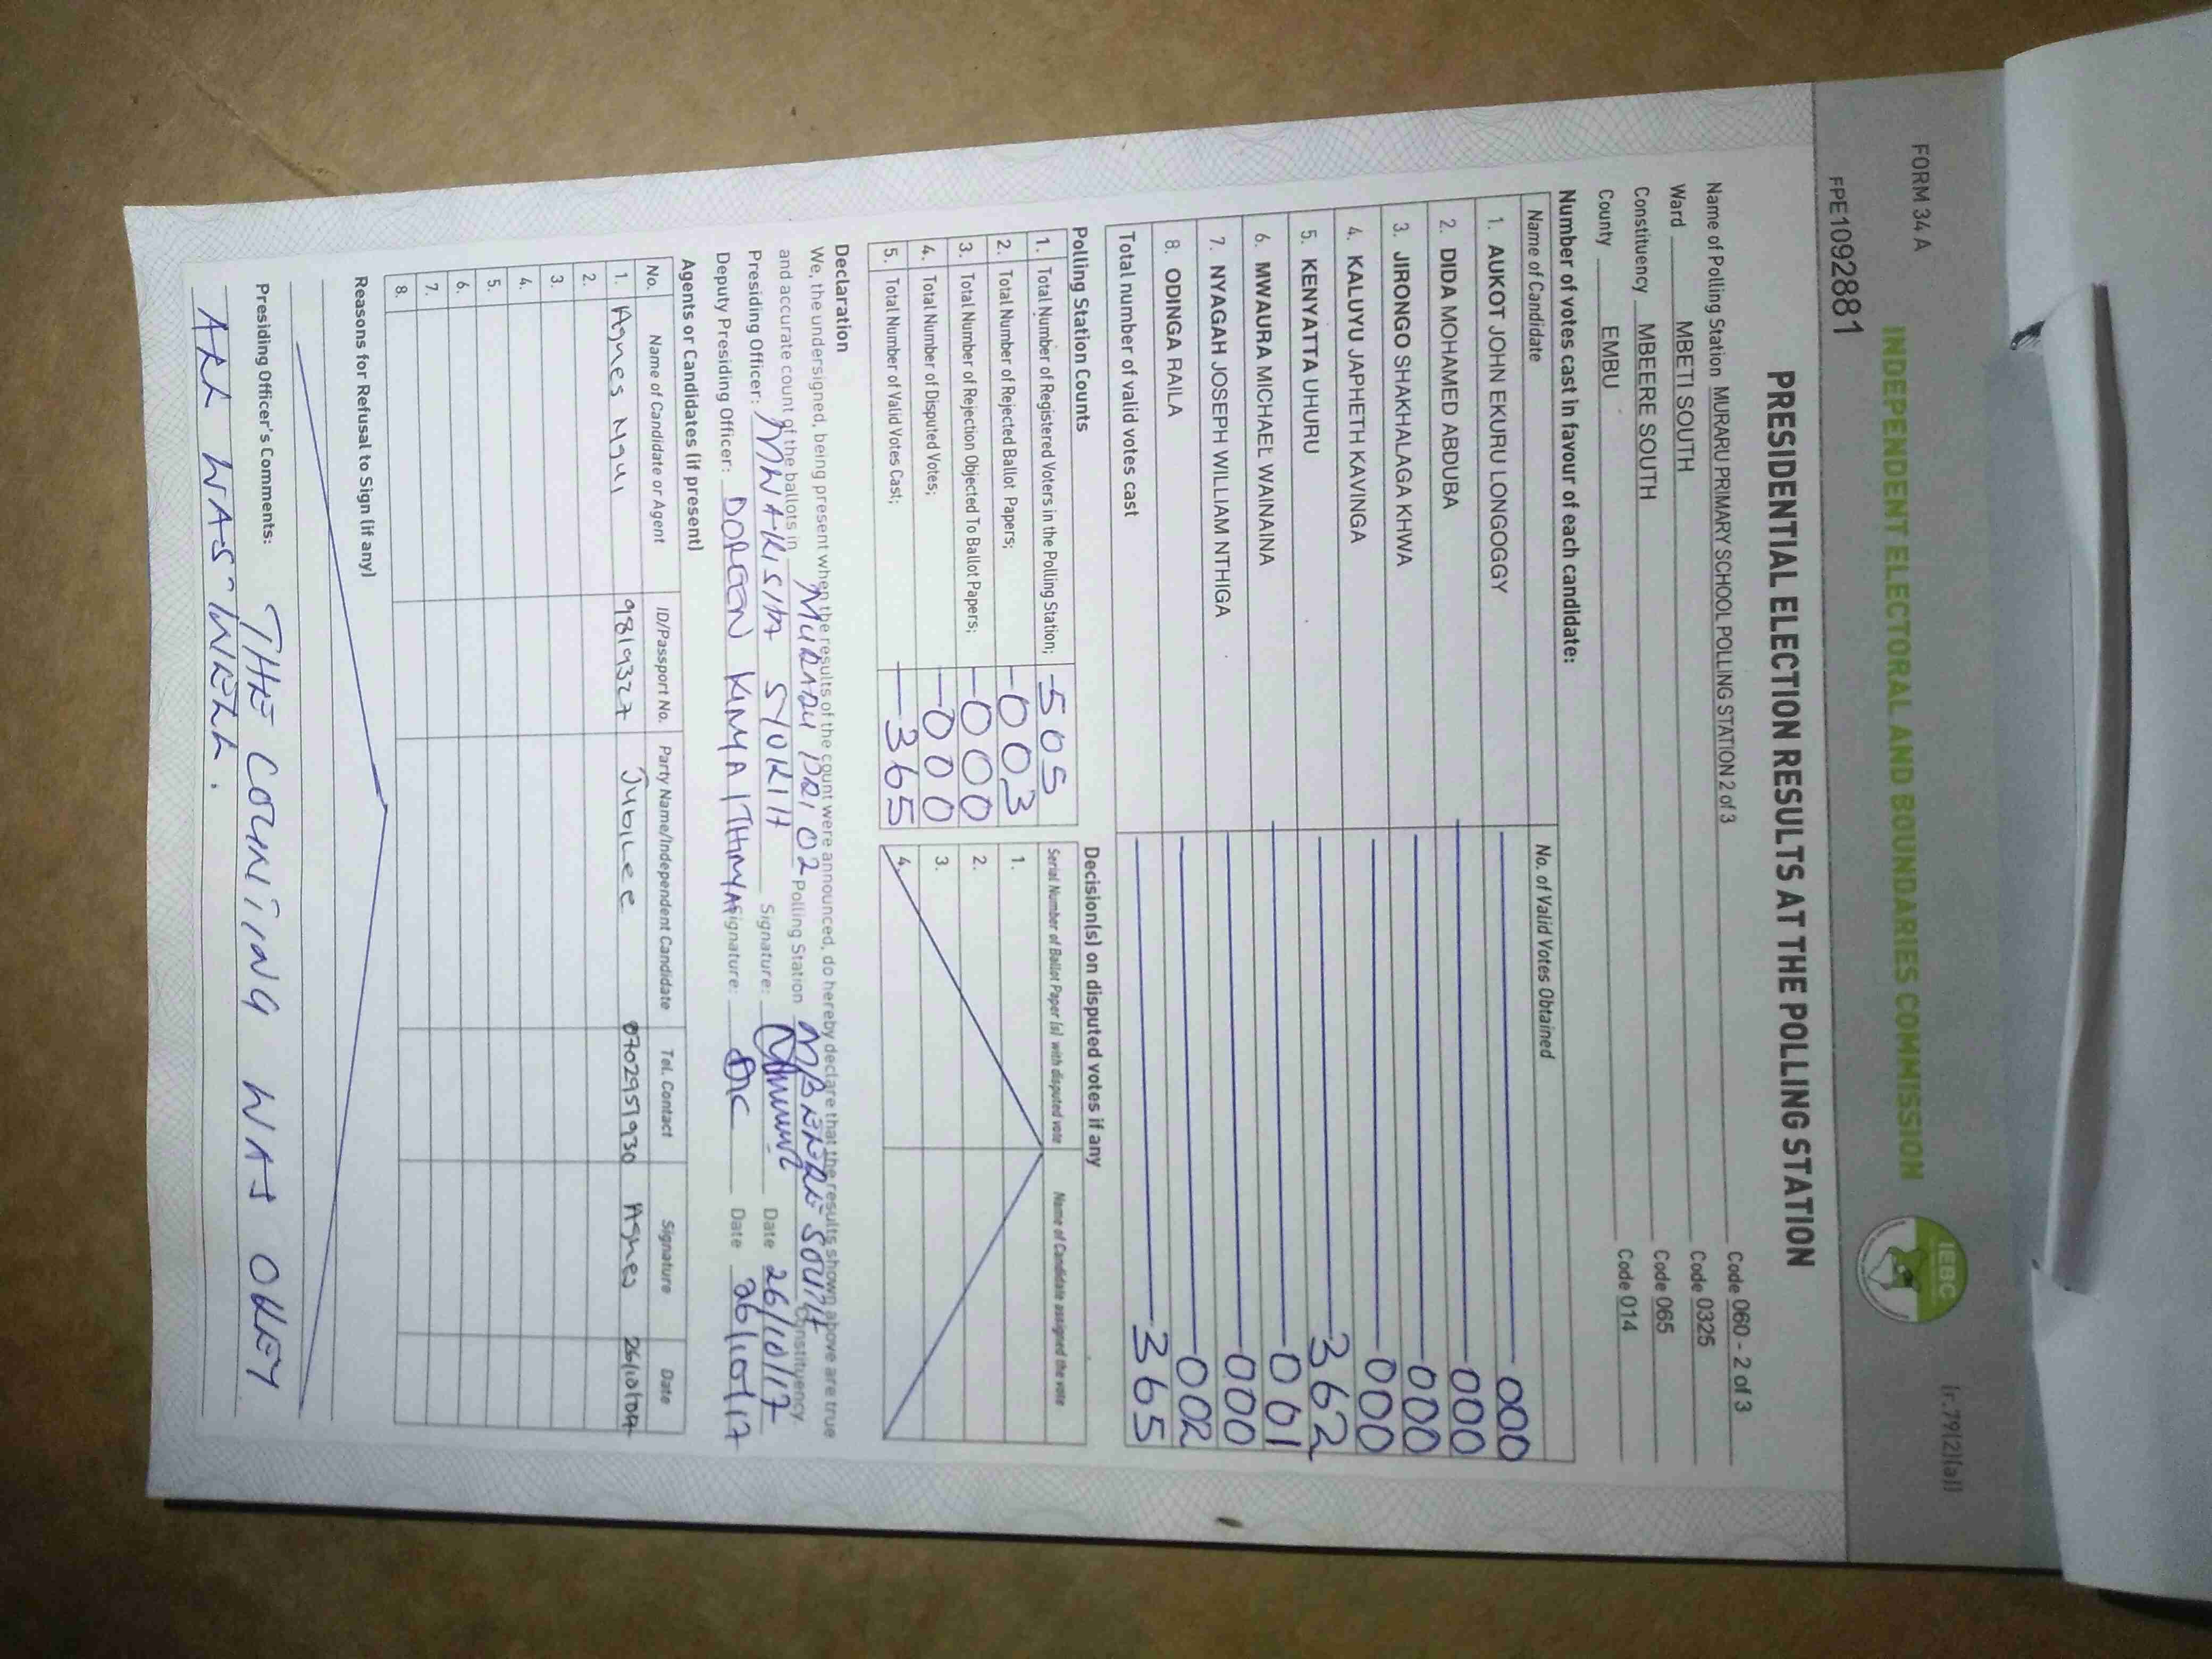 FORM 34 A
(r.79(2)(a))
INDEPENDENT ELECTORAL AND BOUNDARIES COMMISSION
IEBC
FPE1092881
PRESIDENTIAL ELECTION RESULTS AT THE POLLING STATION
Name of Polling Station MURARU PRIMARY SCHOOL POLLING STATION 2 of 3 Code 060 - 2 of 3
Ward MBETI SOUTH Code 0325
Constituency MBEERE SOUTH Code 065
County EMBU Code 014
Number of votes cast in favour of each candidate:
Name of Candidate No. of Valid Votes Obtained
1. AUKOT JOHN EKURU LONGOGGY 000
2. DIDA MOHAMED ABDUBA 000
3. JIRONGO SHAKHALAGA KHWA 000
4. KALUYU JAPHETH KAVINGA 000
5. KENYATTA UHURU 362
6. MWAURA MICHAEL WAINAINA 001
7. NYAGAH JOSEPH WILLIAM NTHIGA 000
8. ODINGA RAILA 002
Total number of valid votes cast 365
Polling Station Counts
1. Total Number of Registered Voters in the Polling Station; 505
2. Total Number of Rejected Ballot Papers; 003
3. Total Number of Rejection Objected To Ballot Papers; 000
4. Total Number of Disputed Votes; 000
5. Total Number of Valid Votes Cast; 365
Decision(s) on disputed votes if any
Serial Number of Ballot Paper (s) with disputed vote Name of Candidate assigned the vote
1.
2.
3.
4.
Declaration
We, the undersigned, being present when the results of the count were announced, do hereby declare that the results shown above are true
and accurate count of the ballots in MURARU PRI 02 Polling Station MBEERE SOUTH Constituency.
Presiding Officer: Signature: Date 26/10/17
Deputy Presiding Officer: DOREEN Signature: Date 26/10/17
Agents or Candidates (if present)
No. Name of Candidate or Agent ID/Passport No. Party Name/Independent Candidate Tel. Contact Signature Date
1. Agnes 9819327 Jubilee 0702951930 Agnes
2.
3.
4.
5.
6.
7.
8.
Reasons for Refusal to Sign (if any)
Presiding Officer's Comments: THE COUNTING WAS OKEY
ALL WAS WELL.